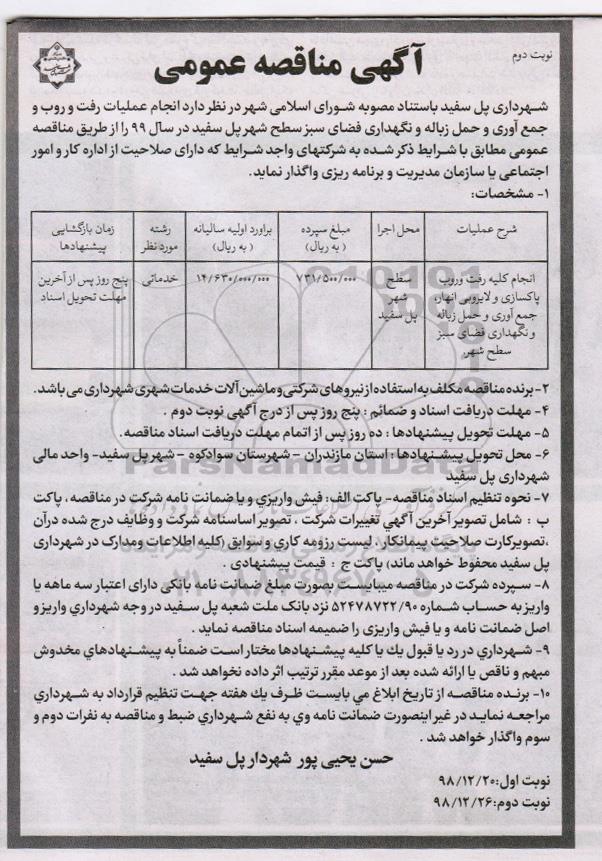 نوبت دوم
آگهی مناقصه عمومی
شهرداری پل سفید باستناد مصوبه شورای اسلامی شهر در نظر دارد انجام عملیات رفت و روب و
جمع آوری و حمل زباله و نگهداری فضای سبز سطح شهر پل سفید در سال ۹۹ را از طریق مناقصه
عمومی مطابق با شرایط ذکر شده به شرکتهای واجد شرایط که دارای صلاحیت از اداره کار و امور
اجتماعی یا سازمان مدیریت و برنامه ریزی واگذار نماید.
۱- مشخصات:
شرح عملیات
محل اجرا
مبلغ سپرده
( به ریال)
براورد اولیه سالیانه
( به ریال)
رشته
مورد نظر
زمان بازگشایی
پیشنهادها
انجام کلیه رفت وروب
پاکسازی و لایروبی انهار،
جمع آوری و حمل زباله
و نگهداری فضای سبز
سطح شهر.
سطح
شهر
پل سفید
۷۳۱/۵۰۰/۰۰۰
۱۴/۶۳۰/۰۰۰/۰۰۰
خدماتی
پنج روز پس از آخرین
مهلت تحویل اسناد
۲- برنده مناقصه مکلف به استفاده از نیروهای شرکتی و ماشین آلات خدمات شهری شهرداری می باشد.
۴- مهلت دریافت اسناد و ضمائم : پنج روز پس از درج آگهی نوبت دوم .
۵- مهلت تحویل پیشنهادها : ده روز پس از اتمام مهلت دریافت اسناد مناقصه.
۶- محل تحویل پیشنهادها : استان مازندران - شهرستان سوادکوه - شهر پل سفید- واحد مالی
شهرداری پل سفید
۷- نحوه تنظیم اسناد مناقصه- پاکت الف: فیش واریزی و یا ضمانت نامه شرکت در مناقصه ، پاکت
ب : شامل تصویر آخرین آگهی تغییرات شرکت ، تصویر اساسنامه شرکت و وظایف درج شده درآن
،تصویرکارت صلاحیت پیمانکار ، لیست رزومه کاری و سوابق (کلیه اطلاعات ومدارک در شهرداری
پل سفید محفوظ خواهد ماند) پاکت ج : قیمت پیشنهادی .
۸- سپرده شرکت در مناقصه میبایست بصورت مبلغ ضمانت نامه بانکی دارای اعتبار سه ماهه یا
واریز به حساب شماره ۵۲۴۷۸۷۲۲/۹۰ نزد بانک ملت شعبه پل سفید در وجه شهرداری واریز و
اصل ضمانت نامه و یا فیش واریزی را ضمیمه اسناد مناقصه نماید .
۹- شهرداری در رد یا قبول یک یا کلیه پیشنهادها مختار است ضمناً به پیشنهادهای مخدوش
مبهم و ناقص یا ارائه شده بعد از موعد مقرر ترتیب اثر داده نخواهد شد .
۱۰- برنده مناقصه از تاریخ ابلاغ می بایست ظرف یک هفته جهت تنظیم قرارداد به شهرداری
مراجعه نماید در غیر اینصورت ضمانت نامه وی به نفع شهرداری ضبط و مناقصه به نفرات دوم و
سوم واگذار خواهد شد .
حسن یحیی پور شهردار پل سفید
نوبت اول:۹۸/۱۲/۲۰
نوبت دوم:۹۸/۱۲/۲۶
ParsNamadData